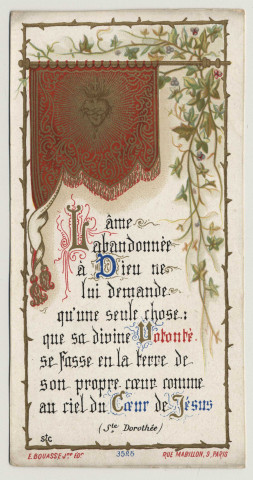 L'âme
abandonnée
à Dieu ne
lui demande
qu'une seule chose:
que sa divine Volonté
se fasse en la terre de
son propre cœur comme
au ciel du Cœur de Jésus
(Ste Dorothée)
E. BOUASSE Jne EDr.
3525
RUE MABILLON, 9, PARIS